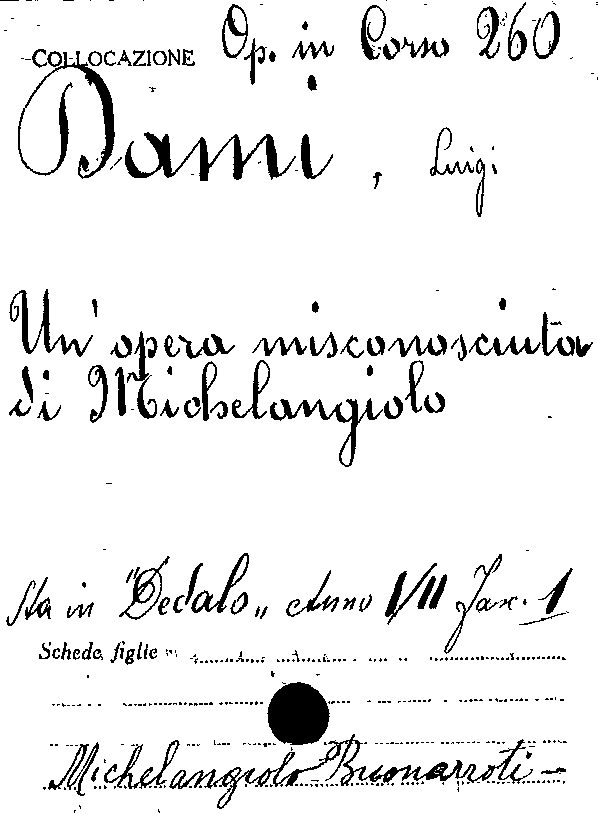 COLLOCAZIONE Op. in Corso 260
Dami, Luigi
Un'opera misconosciuta
di Michelangiolo
Sta in "Dedalo" Anno VII Fasc. 1
Schede figlie
Michelangiolo Buonarroti -